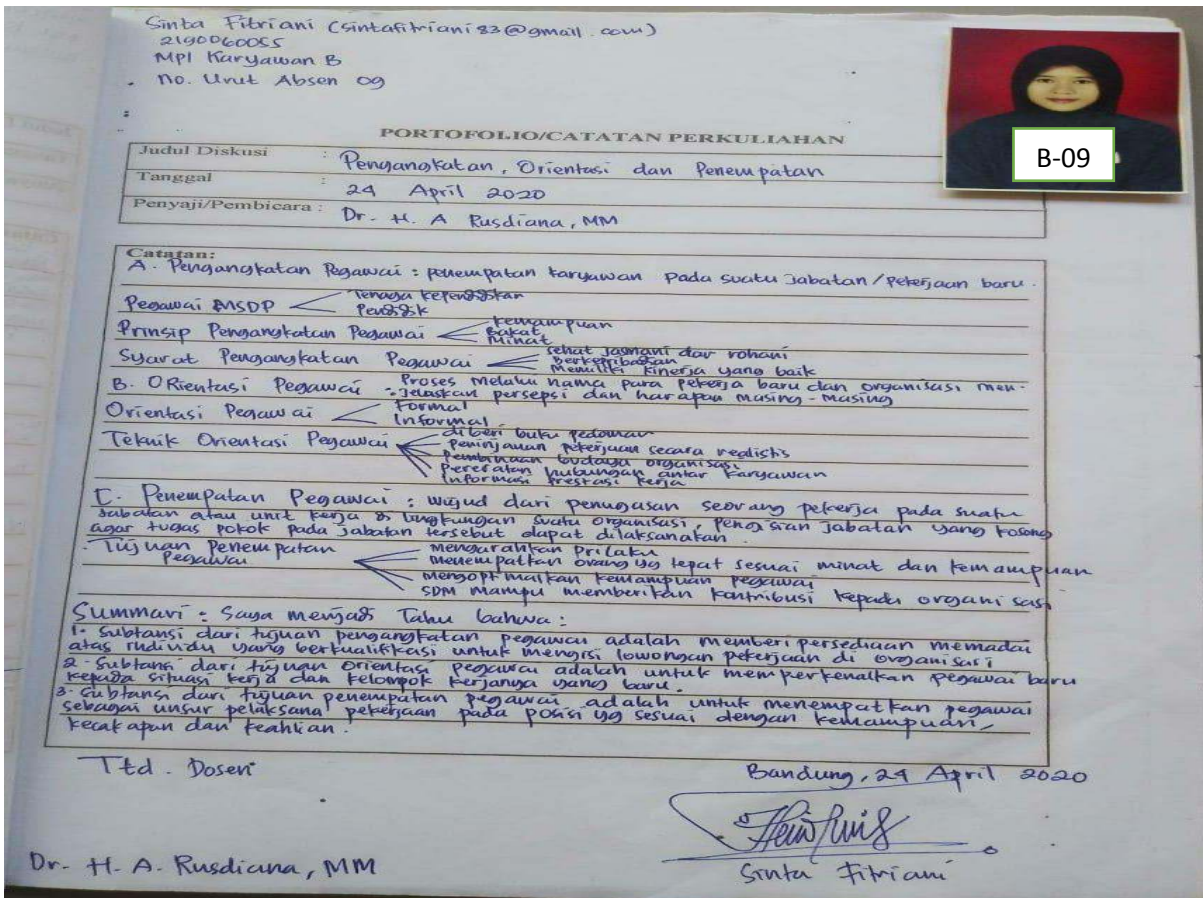 Sinta Fitriani (sintafitriani83@gmail.com)
2190060055
MPI Karyawan B
No. Urut Absen 09
B-09
PORTOFOLIO/CATATAN PERKULIAHAN
Judul Diskusi : Pengangkatan, Orientasi dan Penempatan
Tanggal : 24 April 2020
Penyaji/Pembicara : Dr. H. A Rusdiana, MM
Catatan:
A. Pengangkatan Pegawai : penempatan karyawan pada suatu Jabatan/pekerjaan baru.
Tenaga kependidikan
Pegawai MSDP
Pendidik
Kemampuan
Prinsip Pengangkatan Pegawai Bakat
Minat
sehat jasmani dar rohani
Syarat Pengangkatan Pegawai Berkepribadian
Memiliki kinerja yang baik
B. ORientasi Pegawai : Proses Melaku nama para pekerja baru dan organisasi men-
jelaskan persepsi dan harapan masing-masing
Orientasi Pegawai Formal
Informal
diberi buku pedoman
Teknik Orientasi Pegawai peninjauan pekerjaan secara realistis
pembinaan budaya organisasi
Pereratan hubungan antar karyawan
Informasi Prestasi kerja
C. Penempatan Pegawai : wujud dari penugasan seorang pekerja pada suatu
Jabatan atau unit kerja di lingkungan suatu organisasi, pengisian jabatan yang kosong
agar tugas pokok pada jabatan tersebut dapat dilaksanakan.
Tujuan Penempatan Mengarahkan Prilaku
Pegawai menempatkan orang yg tepat sesuai minat dan kemampuan
mengoptimalkan kemampuan pegawai
SDM mampu memberikan kontribusi kepada organisasi
Summari : Saya menjadi Tahu bahwa :
1. Subtansi dari tujuan pengangkatan pegawai adalah memberi persediaan memadai
atas individu yang berkualifikasi untuk mengisi lowongan pekerjaan di organisasi
2. Subtansi dari tujuan orientasi pegawai adalah untuk memperkenalkan pegawai baru
kepada situasi kerja dan kelompok kerjanya yang baru.
3. Subtansi dari tujuan penempatan pegawai adalah untuk menempatkan pegawai
sebagai unsur pelaksana pekerjaan pada posisi yg sesuai dengan kemampuan,
kecakapan dan keahlian.
Ttd. Dosen
Bandung, 24 April 2020
Dr. H. A. Rusdiana, MM
Sinta Fitriani